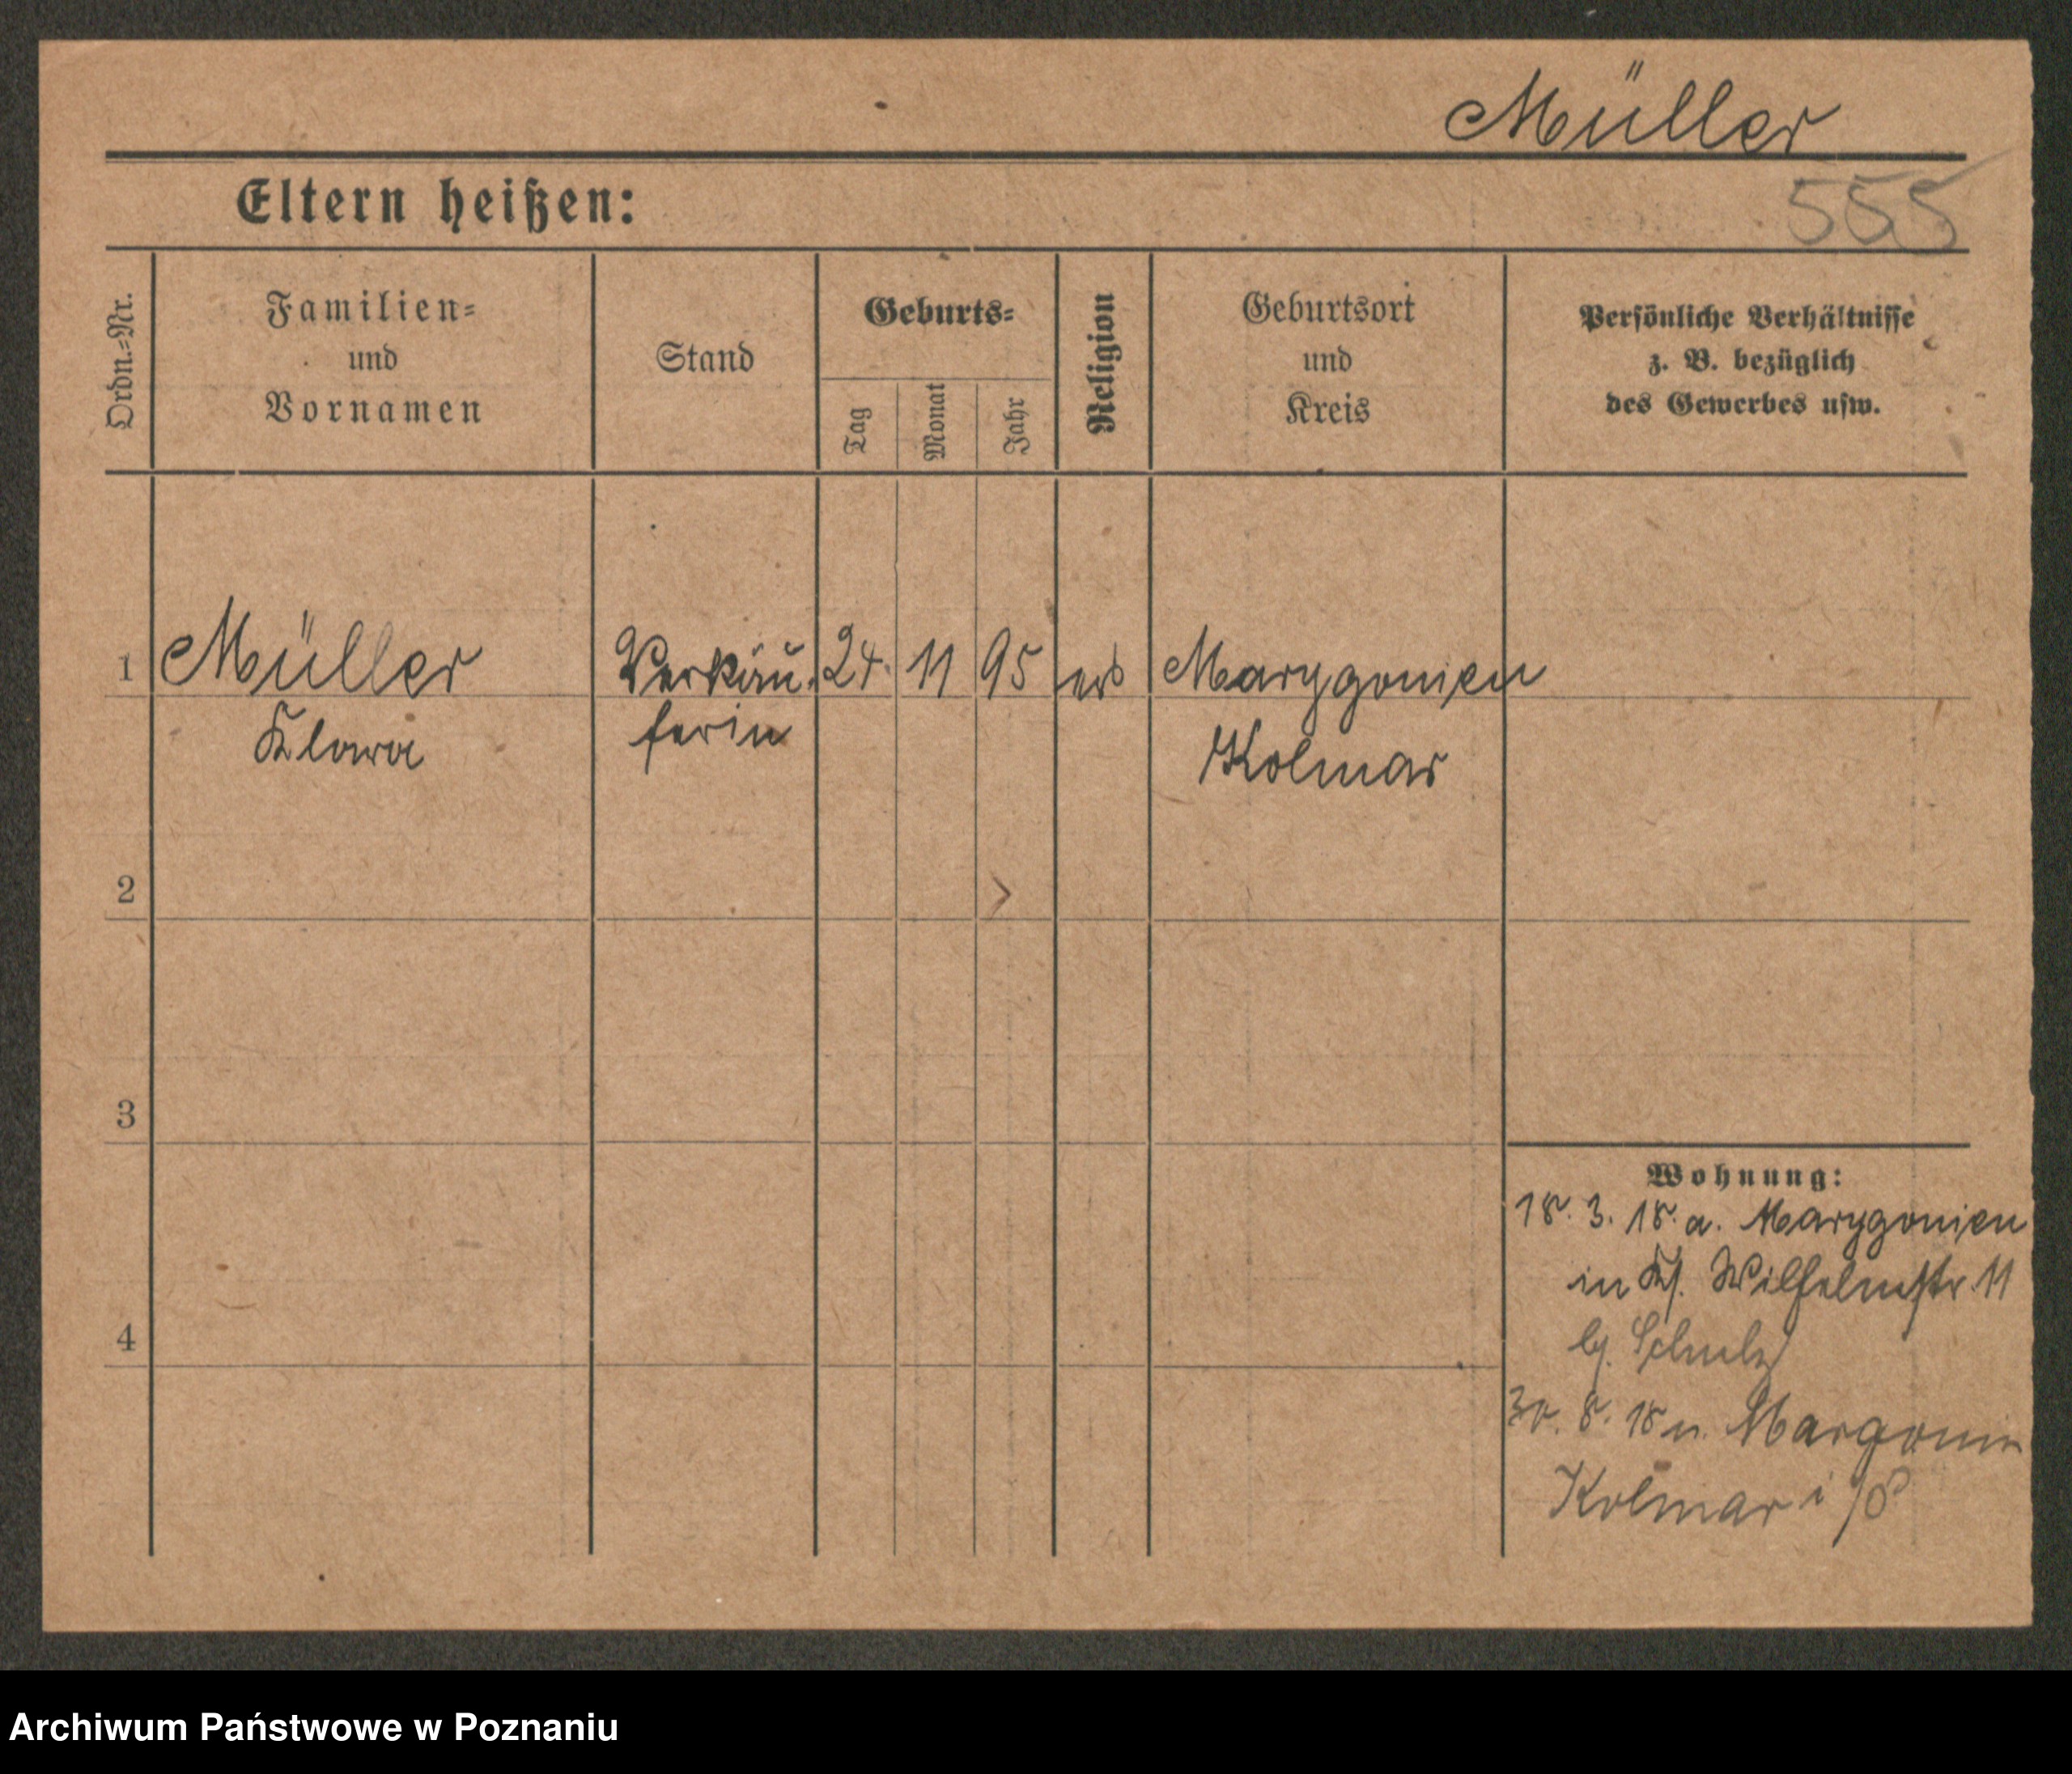 Müller
Eltern heißen:
555
Ordn.-Nr.
Familien-
und
Vornamen
Stand
Geburts-
Tag
Monat
Jahr
Religion
Geburtsort
und
Kreis
Persönliche Verhältnisse
z. B. bezüglich
des Gewerbes usw.
1 Müller Verkäu. 24. 11 95 Marygonien
Klara ferin Kolmar
2
3
4
Wohnung:
18. 3. 18. a. Marygonien
in Wilhelmstr. 11
b. Schulz
30. 8. 18 n. Margonin
Kolmar i/P
Archiwum Państwowe w Poznaniu